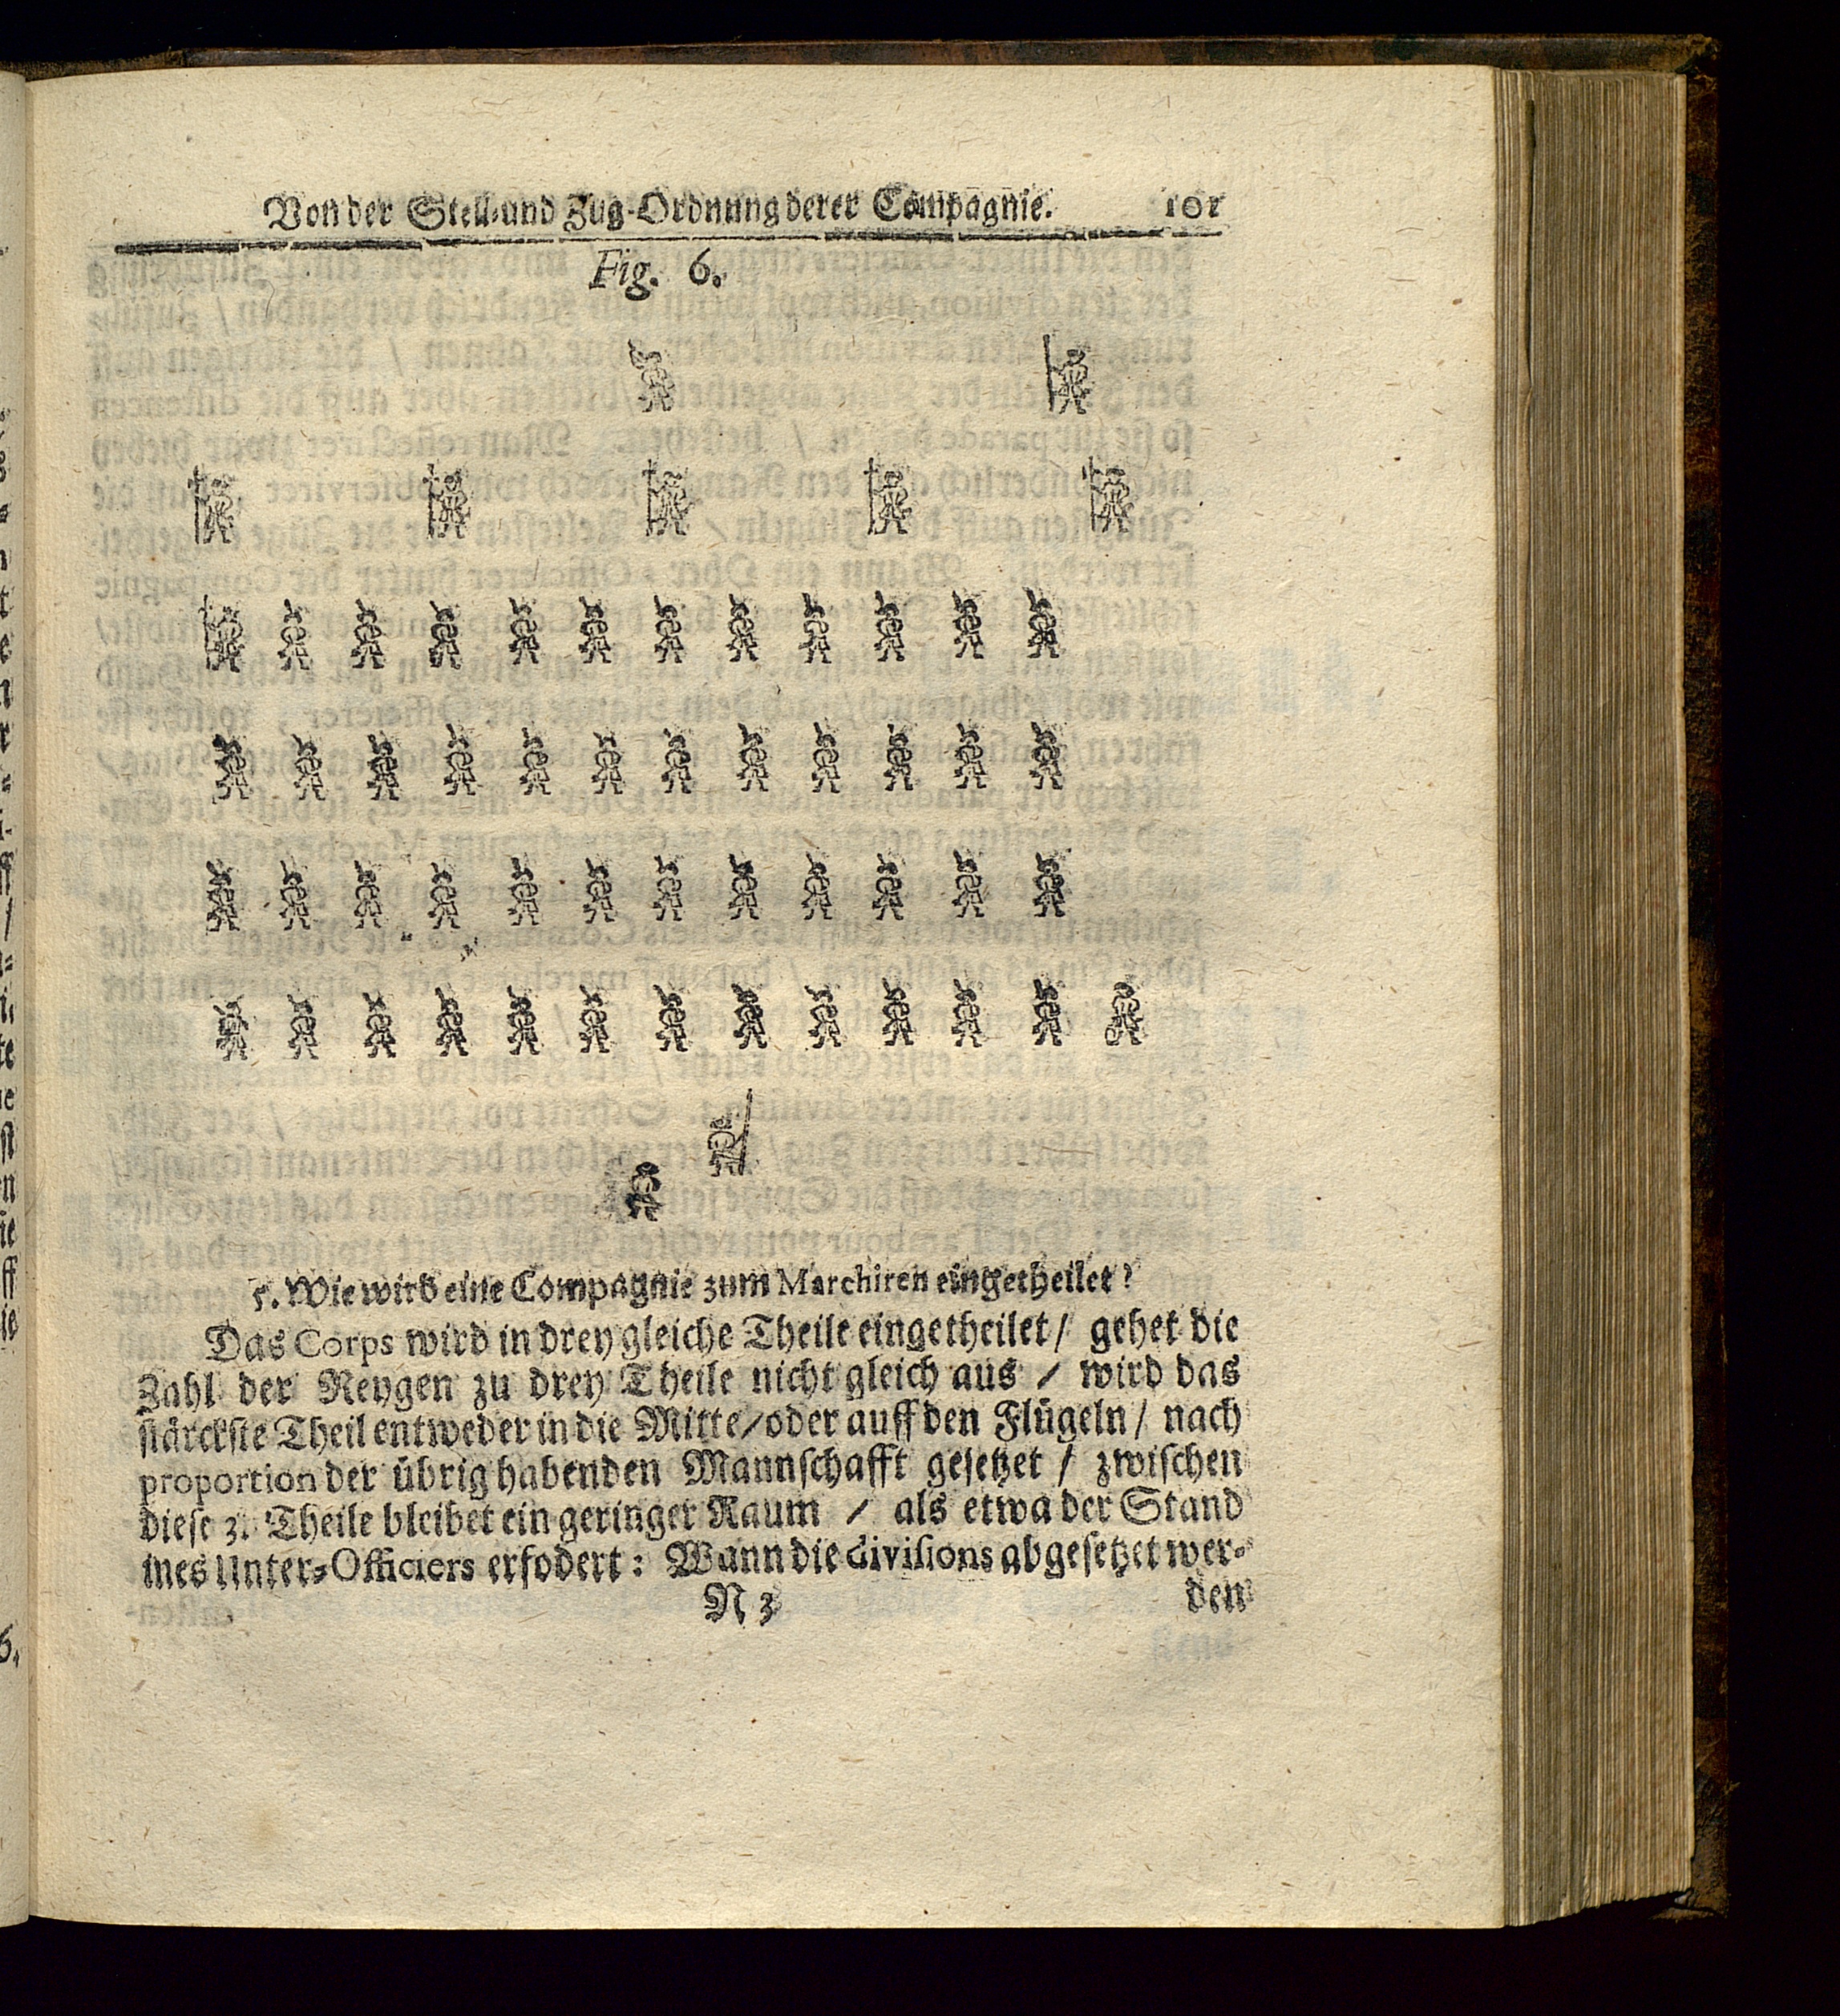 Von der Stell-und Zug-Ordnung derer Compagnie. 101
Fig. 6.
5. Wie wird eine Compagnie zum Marchiren eingetheilet?
Das Corps wird in drey gleiche Theile eingetheilet / gehet die
Zahl der Reygen zu drey Theile nicht gleich aus / wird das
stärckste Theil entweder in die Mitte / oder auff den Flügeln / nach
proportion der übrig habenden Mannschafft gesetzet / zwischen
diese 3. Theile bleibet ein geringer Raum / als etwa der Stand
ines Unter-Officiers erfodert: Wann die divisions abgesetzet wer-
N 3 den
6.